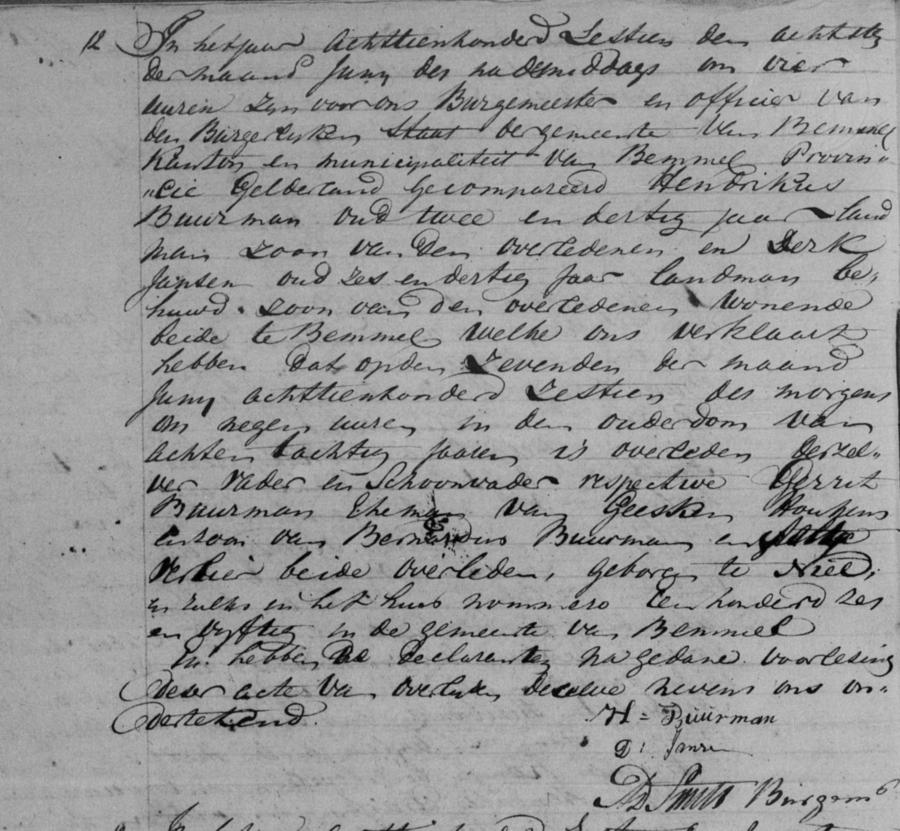 12 In het jaar achttienhonderd Zestien den achtste
der maand Juny des nademiddags om vier
uuren zyn voor ons Burgemeester en officier van
den Burgerlyken Staat der gemeente van Bemmel
Kanton en municipaliteit van Bemmel Provin-
cie Gelderland Gecompareerd Hendrikus
Buurman oud twee en dertig jaar land
man zoon van den overledenen en Derk
Jansen oud zes en dertig jaar landman be-
huwd zoon van den overledenen wonende
beide te Bemmel welke ons verklaart
hebben dat op den Zevenden der maand
Juny achttienhonderd Zestien des morgens
om negen uuren in den ouderdom van
achten tachtig jaaren is overleden derzel-
ver vader en Schoonvader respective Gerrit
Buurman Eheman van Geesken
en zoon van Bernardus Buurman en
beide overleden, geboren te Niel,
en zulks in het huis nommero Een honderd zes
en vyftig in de gemeente van Bemmel
En hebben de Declaranten na gedane voorlesing
deser acte van overlyden deselve nevens ons on-
dertekend.
H = Buurman
D:
Smitt Burgem